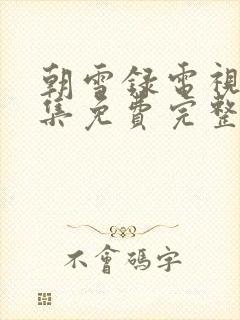 朝雪錄電視
集免費完整
不會碼字